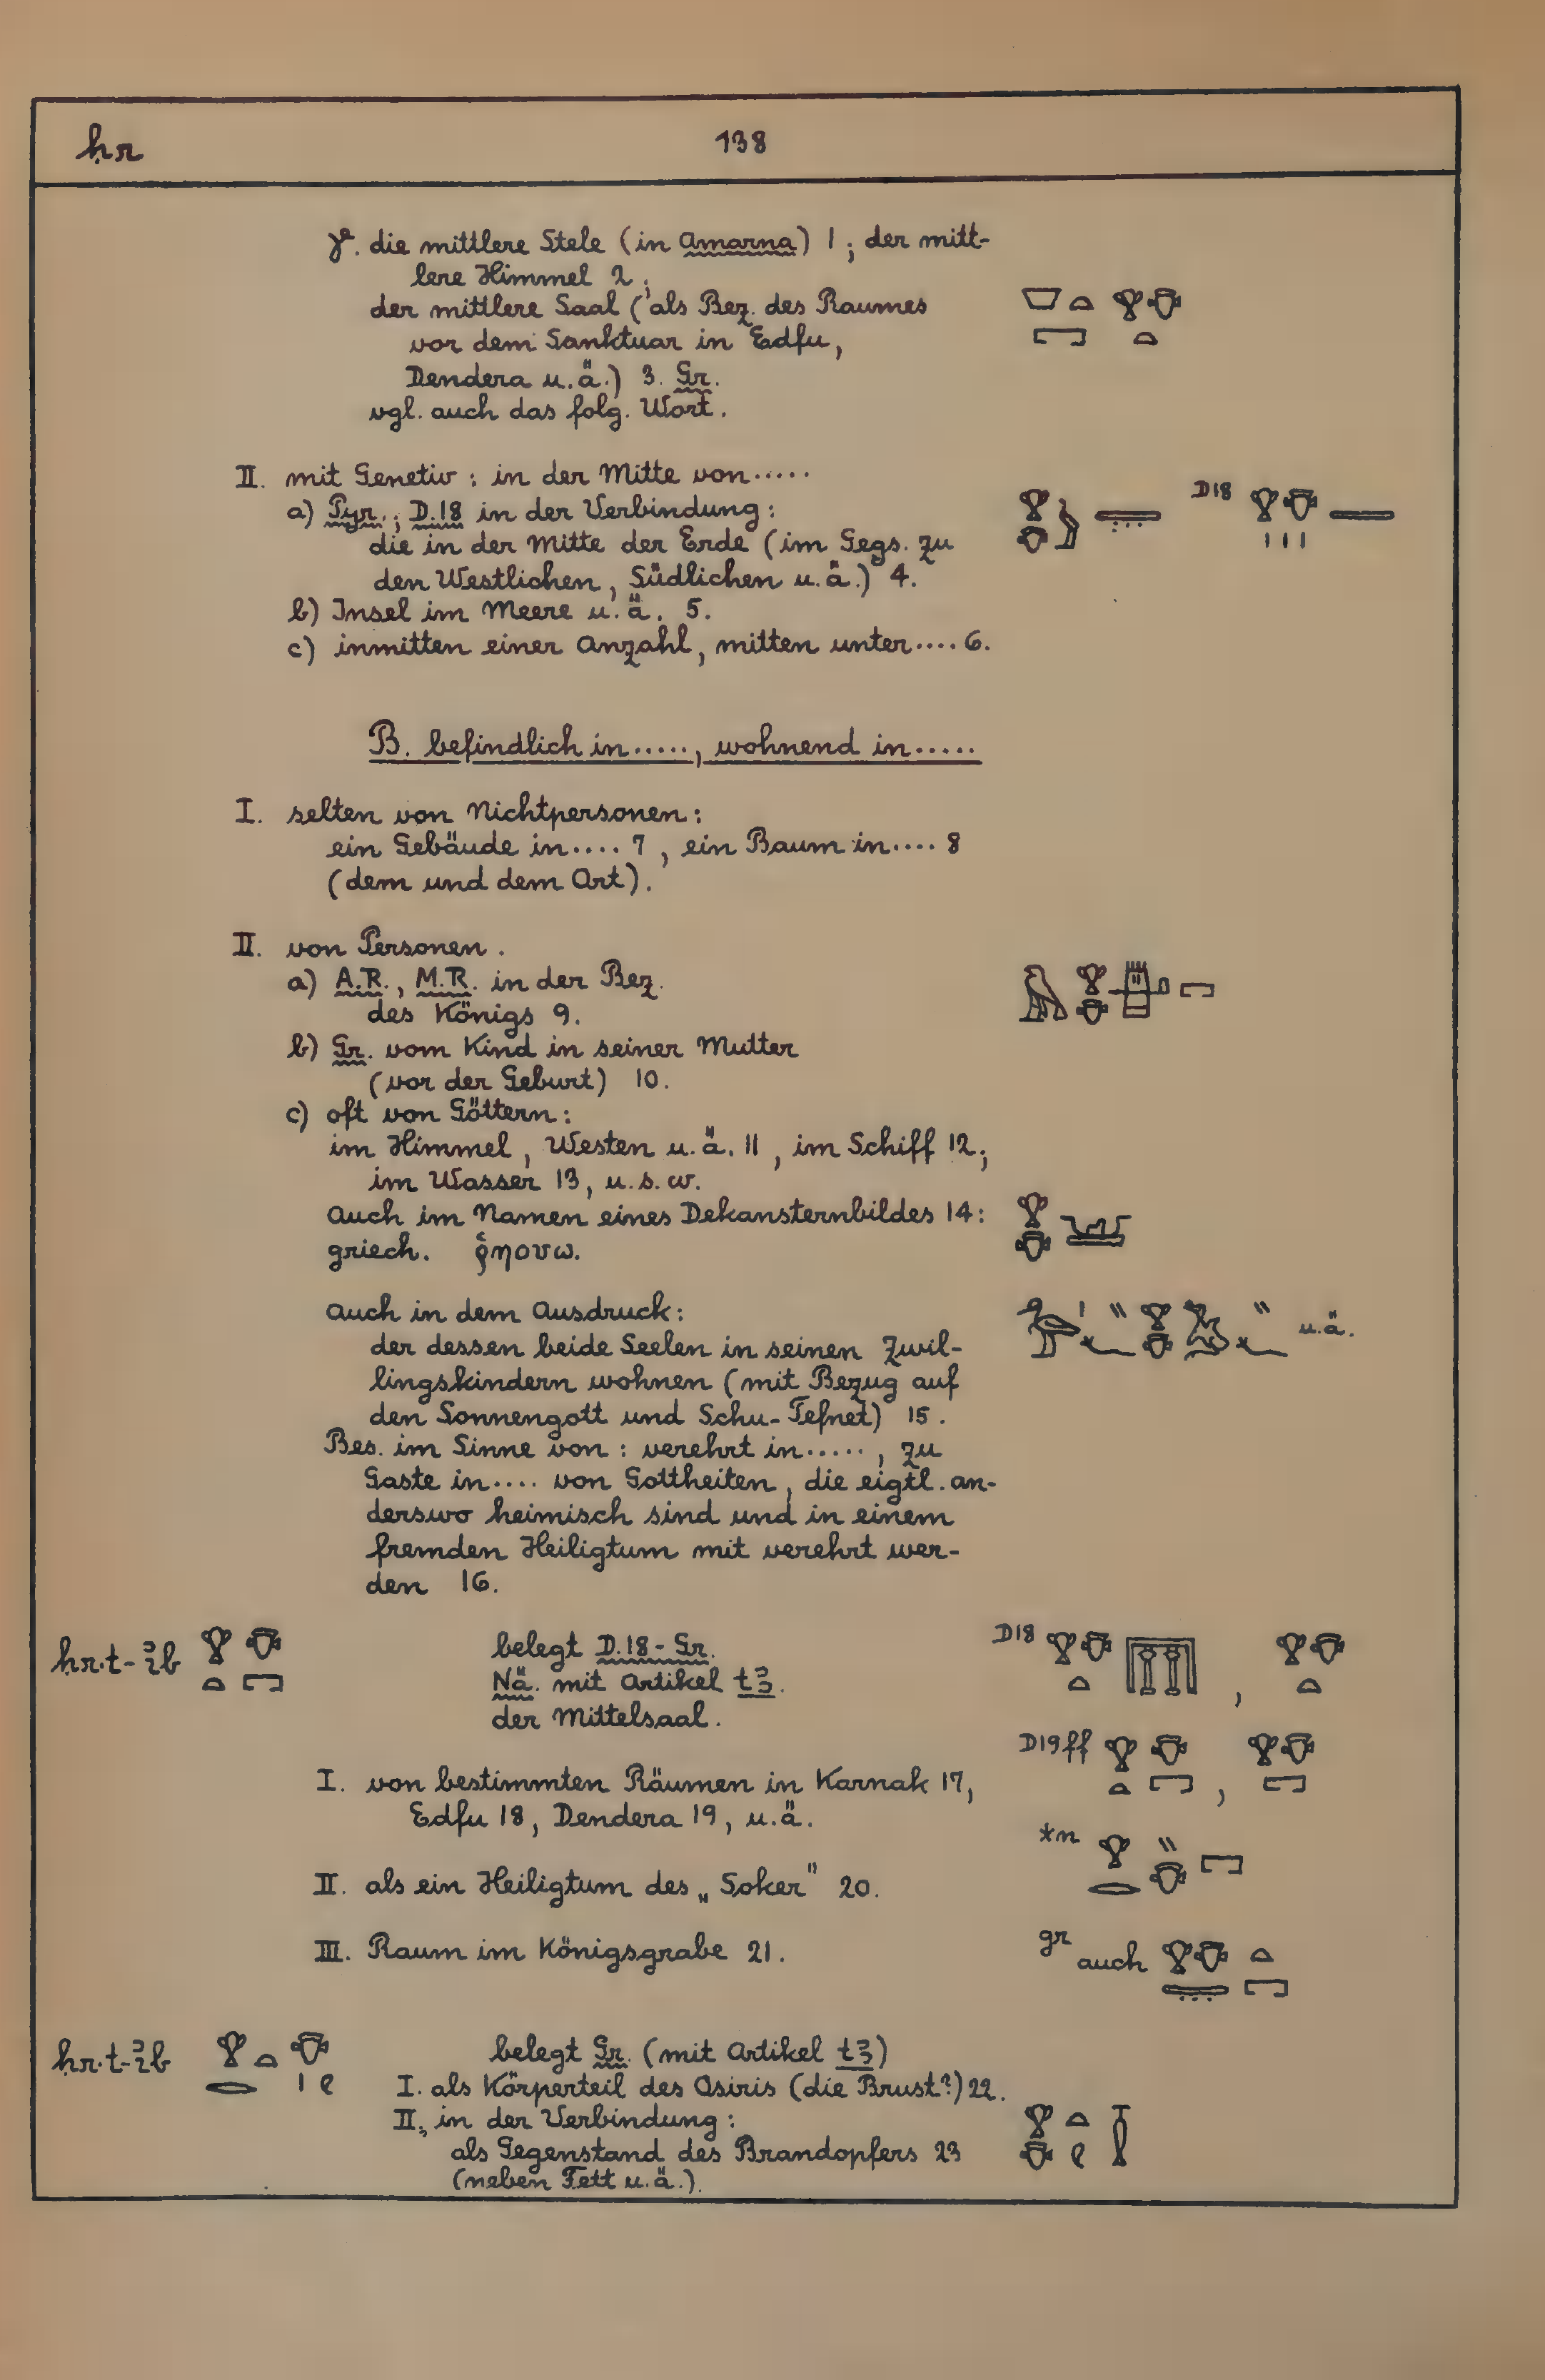 ḥr
138
γ. die mittlere Stele (in Amarna) 1; der mitt-
lere Himmel 2;
der mittlere Saal (als Bez. des Raumes
vor dem Sanktuar in Edfu,
Dendera u.ä.) 3. Gr.
vgl. auch das folg. Wort.
II. mit Genetiv: in der Mitte von.....
a) Pyr.; D.18 in der Verbindung: D18
die in der Mitte der Erde (im Gegs. zu
den Westlichen, Südlichen u.ä.) 4.
b) Insel im Meere u.ä. 5.
c) inmitten einer Anzahl, mitten unter.... 6.
B. befindlich in....., wohnend in.....
I. selten von Nichtpersonen:
ein Gebäude in.... 7, ein Baum in.... 8
(dem und dem Ort).
II. von Personen.
a) A.R., M.R. in der Bez.
des Königs 9.
b) Gr. vom Kind in seiner Mutter
(vor der Geburt) 10.
c) oft von Göttern:
im Himmel, Westen u.ä. 11, im Schiff 12;
im Wasser 13, u.s.w.
auch im Namen eines Dekansternbildes 14:
griech. ῥηουω.
auch in dem Ausdruck: u.ä.
der dessen beide Seelen in seinen Zwil-
lingskindern wohnen (mit Bezug auf
den Sonnengott und Schu-Tefnet) 15.
Bes. im Sinne von: verehrt in....., zu
Gaste in.... von Gottheiten, die eigtl. an-
derswo heimisch sind und in einem
fremden Heiligtum mit verehrt wer-
den 16.
ḥr·t-ỉb belegt D.18-Gr. D18
Nä. mit Artikel tꜣ.
der Mittelsaal.
D19ff
I. von bestimmten Räumen in Karnak 17,
Edfu 18, Dendera 19, u.ä.
*n
II. als ein Heiligtum des „Soker" 20.
III. Raum im Königsgrabe 21. gr auch
ḥr·t-ỉb belegt Gr. (mit Artikel tꜣ)
I. als Körperteil des Osiris (die Brust?) 22.
II. in der Verbindung:
als Gegenstand des Brandopfers 23
(neben Fett u.ä.).